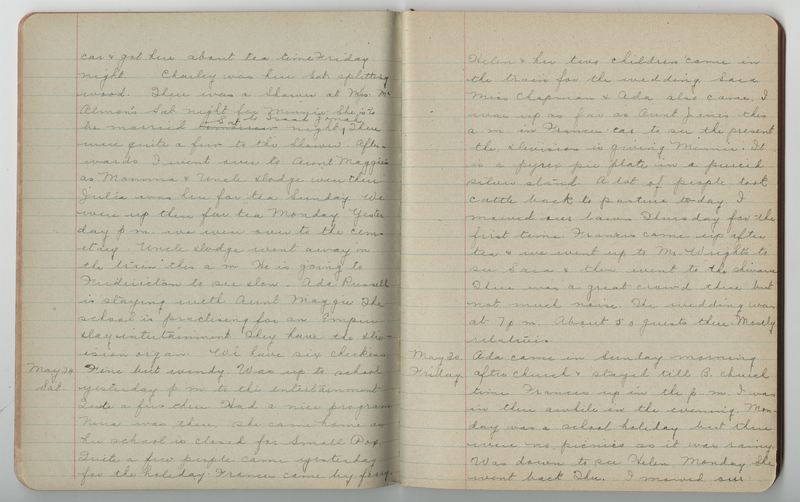 car & got here about tea time Friday
night Charley was here Sat. splitting
wood. There was a Shower at Mrs. Mc
Almon's Sat night for Minnie She is to
be married tomorrow night, Sat to Isaac Jonah There
were quite a few to the Shower. After
wards I went over to Aunt Maggie's
as Mamma & Uncle Dodge were there
Julia was here for tea Sunday We
were up there for tea Monday Yester
day p.m. we were over to the cem-
etery Uncle Dodge went away in
the train this a.m He is going to
Fredericton to see Ada Russell
is staying with Aunt Maggie The
school is practising for an Empire
day intertainment They have the
organ We have six chickens
May 24 Fine but windy. Was up to school
Sat. yesterday p.m to the entertainment
Quite a few there Had a nice program
Nina was there, she came home as
her school is closed for Small Pox.
Quite a few people came yesterday
for the holiday Francis came by ferry
Helen & her two children came in
the train for the wedding. Sara
Miss Chapman & Ada also came. I
was up as far as Aunt Janes this
a.m in Francis car to see the present
the division is giving Minnie. It
is a pyrex pie plate in a pierced
silver stand A lot of people took
cattle back to pasture to-day I
mowed our lawn Thursday for the
first time Francis came up after
tea & we went up to Mr. Wrights to
see Sara & then went to the shivare
There was a great crowd there but
not much noise. The wedding was
at 7 p.m. About 50 guests there Mostly
relatives
May 30 Ada came in Sunday morning
Friday after church & stayed till B. church
time Francis up in the p.m. I was
in there awhile in the evening. Mon-
day was a school holiday but there
were no picnics as it was rainy
Was down to see Helen Monday She
went back Thu. I mowed our